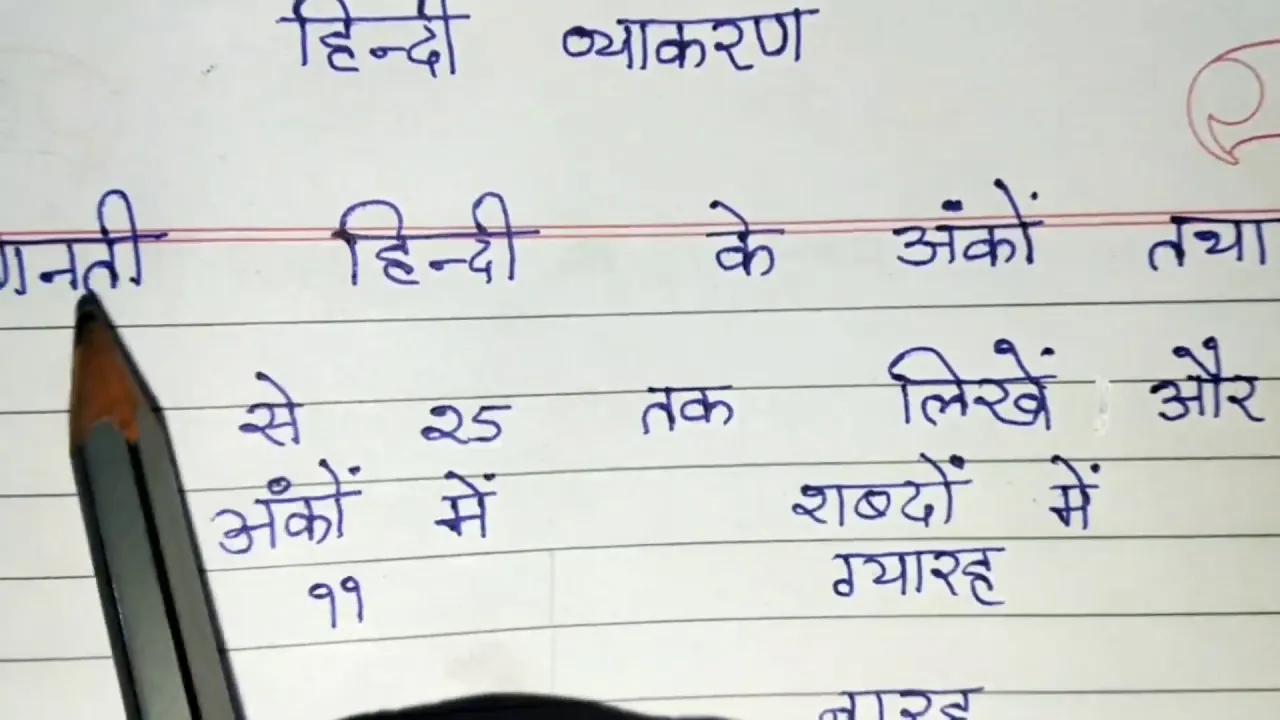 हिन्दी व्याकरण
गनती हिन्दी के अंकों तथा
से २५ तक लिखें और
अंकों में शब्दों में
११ ग्यारह
बारह